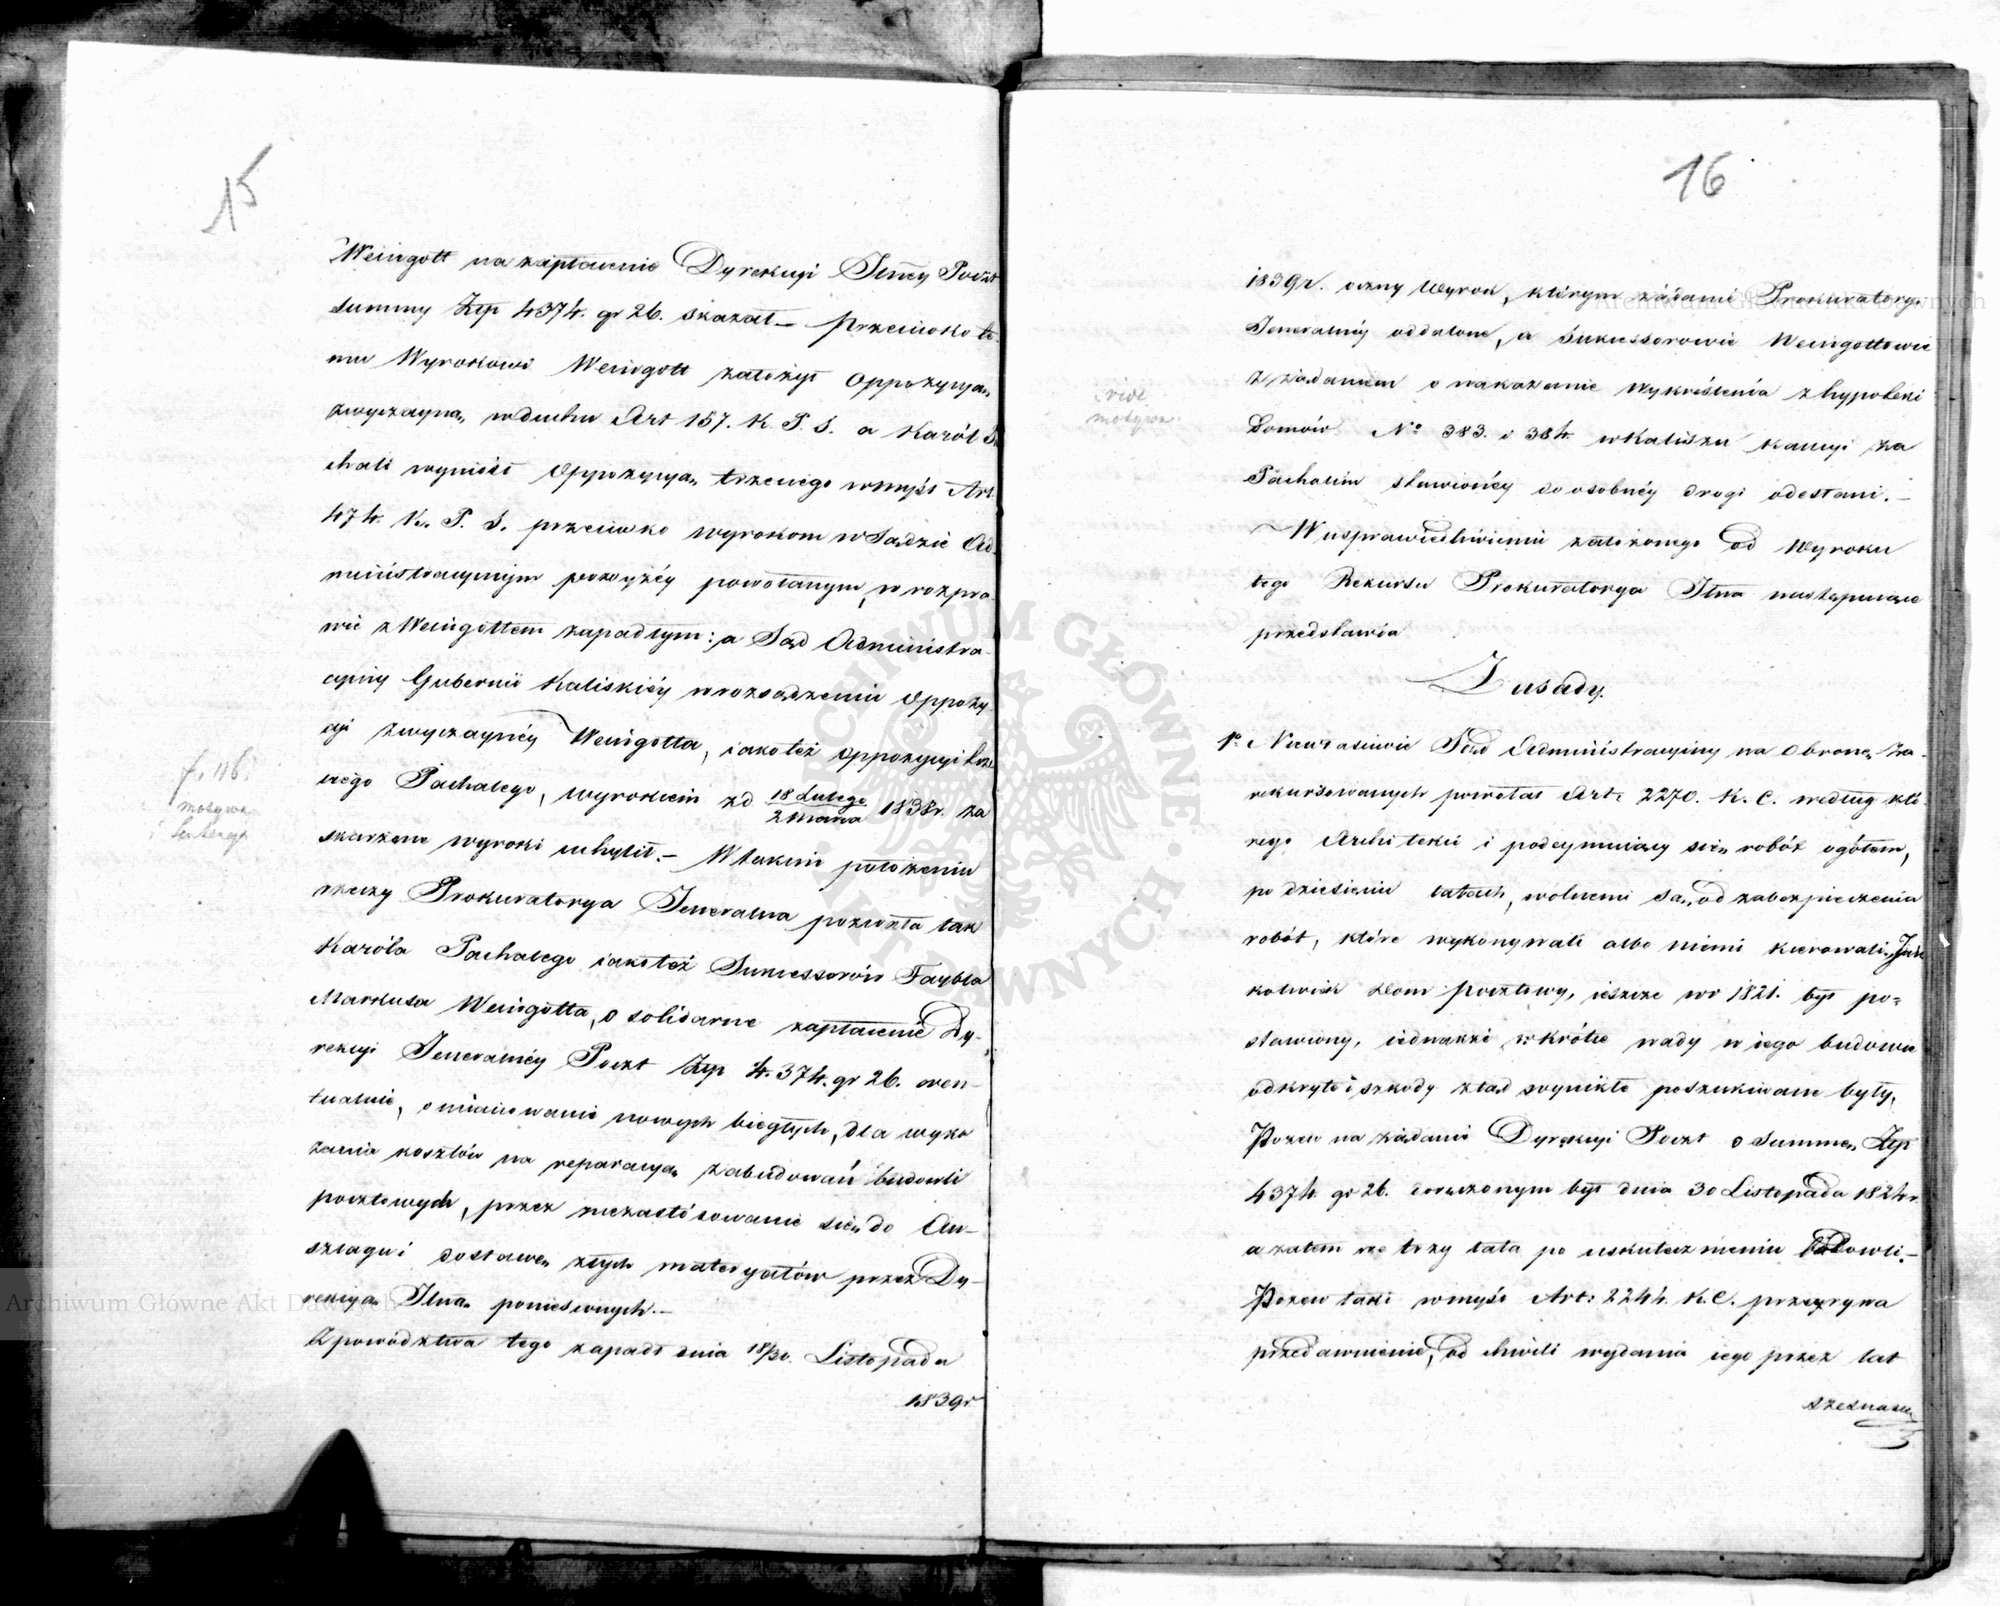 15
Weingott na zapłacenie Dyrekcyi Jlney Poczt
summy Złp 4374. gr 26. skazał – Przeciwko te-
mu Wyrokowi Weingott założył Oppozycyą
zwyczayną w duchu Art 157. K. P. S. a Karól Pa-
chali wyniósł Oppozycyą trzeciego w myśl Art.
474. K. P. S. przeciwko wyrokom w Sądzie Ad-
ministracyinym powyżéy powołanym, w rozpra-
wie z Weingottem zapadłym: a Sąd Administra-
cyiny Gubernii Kaliskiéy w rozsądzeniu Oppozy-
cyi zwyczaynéy Weingotta, iako też oppozycyi trze-
ciego Pachalego, wyrokiem z d 18 Lutego/2 Marca 1838r. za
skarżone wyroki uchylił. – W takim położeniu
rzeczy Prokuratorya Jeneralna pozwała tak
Karóla Pachalego iako też Sukcessorów Faybla
Markusa Weingotta, o solidarne zapłacenie Dy-
rekcyi Jeneralnéy Poczt Złp 4.374. gr 26. ewen-
tualnie, o mianowanie nowych biegłych, dla wyka
zania kosztów na reparacyą zabudowań budowli
pocztowych, przez niezastósowanie się do An-
szlagu i dostawę złych materyałów przez Dy-
rekcyą Jlną poniesionych. –
Z powództwa tego zapadł dnia 18/30. Listopada
1839r
f. 116.
motywa
i sentencya
16
1839r. oczny Wyrok, którym żądanie Prokuratoryi
Jeneralnéy oddalone, a Sukcessorowie Weingottowie
z żądaniem o nakazanie wykreślenia z hypoteki
Domów No 383. i 384. w Kaliszu kaucyi za
Pachalim stawionéy do osobnéy drogi odesłani. –
W usprawiedliwieniu założonego od Wyroku
tego Rekursu Prokuratorya Jlna następuiące
przedstawia
Zasady.
1o Niewłaściwie Sąd Administracyiny na obronę za-
rekursowanych powołał Art: 2270. K. C. według któ-
rego Architekci i podeymuiący się robót ogółem,
po dziesięciu latach, wolnemi są od zabezpieczenia
robót, które wykonywali albo niemi kierowali. Jak
kolwiek Dom pocztowy, ieszcze w r 1821. był po-
stawiony, iednakże wkrótce wady w iego budowie
odkryte i szkody ztąd wynikłe poszukiwane były.
Pozew na żądanie Dyrekcyi Poczt o Summę Złp
4374. gr 26. doręczonym był dnia 30 Listopada 1824r.
a zatem we trzy lata po uskutecznieniu budowli. –
Pozew taki w myśl Art: 2244. K. C. przerywa
przedawnienie, od chwili wydania iego przez lat
szesnaście
motywa
Archiwum Główne Akt Dawnych
Archiwum Główne Akt Dawnych
ARCHIWUM GŁÓWNE AKT DAWNYCH